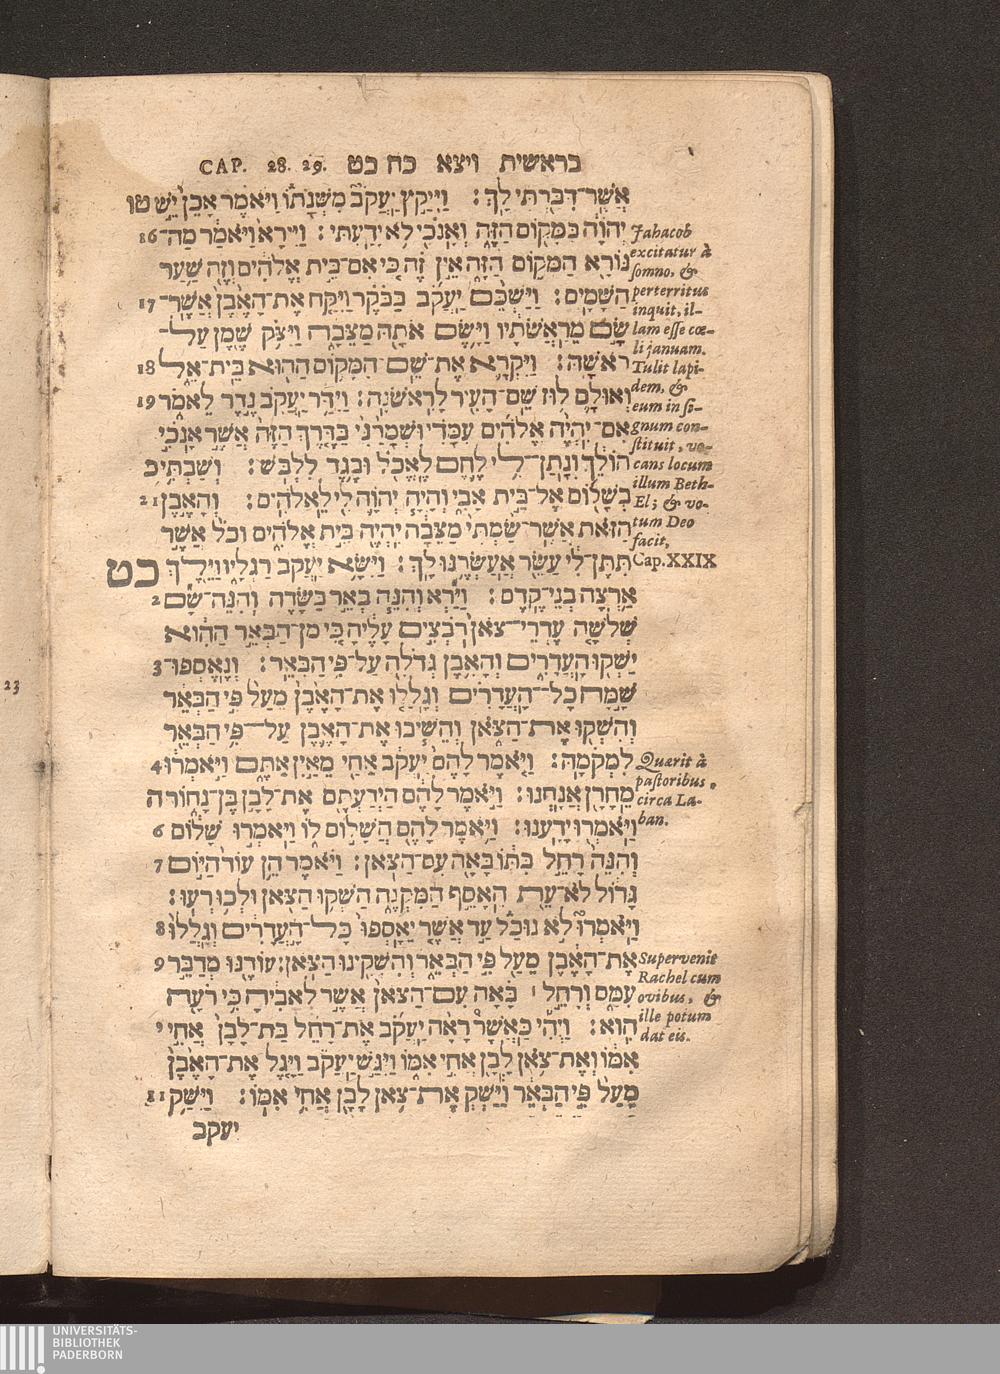 בראשית ויצא כח כט CAP. 28. 29.
אֲשֶׁר־דִּבַּרְתִּי לָךְ׃ וַיִּיקַץ יַעֲקֹב מִשְּׁנָתוֹ וַיֹּאמֶר אָכֵן יֵשׁ טו
יְהוָה בַּמָּקוֹם הַזֶּה וְאָנֹכִי לֹא יָדָעְתִּי׃ וַיִּירָא וַיֹּאמַר מַה־ 16
נּוֹרָא הַמָּקוֹם הַזֶּה אֵין זֶה כִּי אִם־בֵּית אֱלֹהִים וְזֶה שַׁעַר
הַשָּׁמָיִם׃ וַיַּשְׁכֵּם יַעֲקֹב בַּבֹּקֶר וַיִּקַּח אֶת־הָאֶבֶן אֲשֶׁר־ 17
שָׂם מְרַאֲשֹׁתָיו וַיָּשֶׂם אֹתָהּ מַצֵּבָה וַיִּצֹק שֶׁמֶן עַל־
רֹאשָׁהּ׃ וַיִּקְרָא אֶת־שֵׁם־הַמָּקוֹם הַהוּא בֵּית־אֵל 18
וְאוּלָם לוּז שֵׁם־הָעִיר לָרִאשֹׁנָה׃ וַיִּדַּר יַעֲקֹב נֶדֶר לֵאמֹר 19
אִם־יִהְיֶה אֱלֹהִים עִמָּדִי וּשְׁמָרַנִי בַּדֶּרֶךְ הַזֶּה אֲשֶׁר אָנֹכִי
הוֹלֵךְ וְנָתַן־לִי לֶחֶם לֶאֱכֹל וּבֶגֶד לִלְבֹּשׁ׃ וְשַׁבְתִּי כ
בְשָׁלוֹם אֶל־בֵּית אָבִי וְהָיָה יְהוָה לִי לֵאלֹהִים׃ וְהָאֶבֶן 21
הַזֹּאת אֲשֶׁר־שַׂמְתִּי מַצֵּבָה יִהְיֶה בֵּית אֱלֹהִים וכֹל אֲשֶׁר
תִּתֶּן־לִי עַשֵּׂר אֲעַשְּׂרֶנּוּ לָךְ׃ וַיִּשָּׂא יַעֲקֹב רַגְלָיו וַיֵּלֶךְ כט
אַרְצָה בְנֵי־קֶדֶם׃ וַיַּרְא וְהִנֵּה בְאֵר בַּשָּׂדֶה וְהִנֵּה־שָׁם 2
שְׁלֹשָׁה עֶדְרֵי־צֹאן רֹבְצִים עָלֶיהָ כִּי מִן־הַבְּאֵר הַהִוא
יַשְׁקוּ הָעֲדָרִים וְהָאֶבֶן גְּדֹלָה עַל־פִּי הַבְּאֵר׃ וְנֶאֶסְפוּ־ 3
שָׁמָּה כָל־הָעֲדָרִים וְגָלֲלוּ אֶת־הָאֶבֶן מֵעַל פִּי הַבְּאֵר
וְהִשְׁקוּ אֶת־הַצֹּאן וְהֵשִׁיבוּ אֶת־הָאֶבֶן עַל־פִּי הַבְּאֵר
לִמְקֹמָהּ׃ וַיֹּאמֶר לָהֶם יַעֲקֹב אַחַי מֵאַיִן אַתֶּם וַיֹּאמְרוּ 4
מֵחָרָן אֲנָחְנוּ׃ וַיֹּאמֶר לָהֶם הַיְדַעְתֶּם אֶת־לָבָן בֶּן־נָחוֹר ה
וַיֹּאמְרוּ יָדָעְנוּ׃ וַיֹּאמֶר לָהֶם הֲשָׁלוֹם לוֹ וַיֹּאמְרוּ שָׁלוֹם 6
וְהִנֵּה רָחֵל בִּתּוֹ בָּאָה עִם־הַצֹּאן׃ וַיֹּאמֶר הֵן עוֹד הַיּוֹם 7
גָּדוֹל לֹא־עֵת הֵאָסֵף הַמִּקְנֶה הַשְׁקוּ הַצֹּאן וּלְכוּ רְעוּ׃
וַיֹּאמְרוּ לֹא נוּכַל עַד אֲשֶׁר יֵאָסְפוּ כָּל־הָעֲדָרִים וְגָלֲלוּ 8
אֶת־הָאֶבֶן מֵעַל פִּי הַבְּאֵר וְהִשְׁקִינוּ הַצֹּאן׃ עוֹדֶנּוּ מְדַבֵּר 9
עִמָּם וְרָחֵל ׀ בָּאָה עִם־הַצֹּאן אֲשֶׁר לְאָבִיהָ כִּי רֹעָה
הִוא׃ וַיְהִי כַּאֲשֶׁר רָאָה יַעֲקֹב אֶת־רָחֵל בַּת־לָבָן אֲחִי י
אִמּוֹ וְאֶת־צֹאן לָבָן אֲחִי אִמּוֹ וַיִּגַּשׁ יַעֲקֹב וַיָּגֶל אֶת־הָאֶבֶן
מֵעַל פִּי הַבְּאֵר וַיַּשְׁקְ אֶת־צֹאן לָבָן אֲחִי אִמּוֹ׃ וַיִּשַּׁק 11
יעקב
Jahacob
excitatur à
somno, &
perterritus
inquit, il-
lam esse cœ-
li januam.
Tulit lapi-
dem, &
eum in si-
gnum con-
stituit, vo-
cans locum
illum Beth-
El; & vo-
tum Deo
facit,
Cap. XXIX
Quærit à
pastoribus
circa La-
ban.
Supervenit
Rachel cum
ovibus, &
ille potum
dat eis.
23
UNIVERSITÄTS-
BIBLIOTHEK
PADERBORN